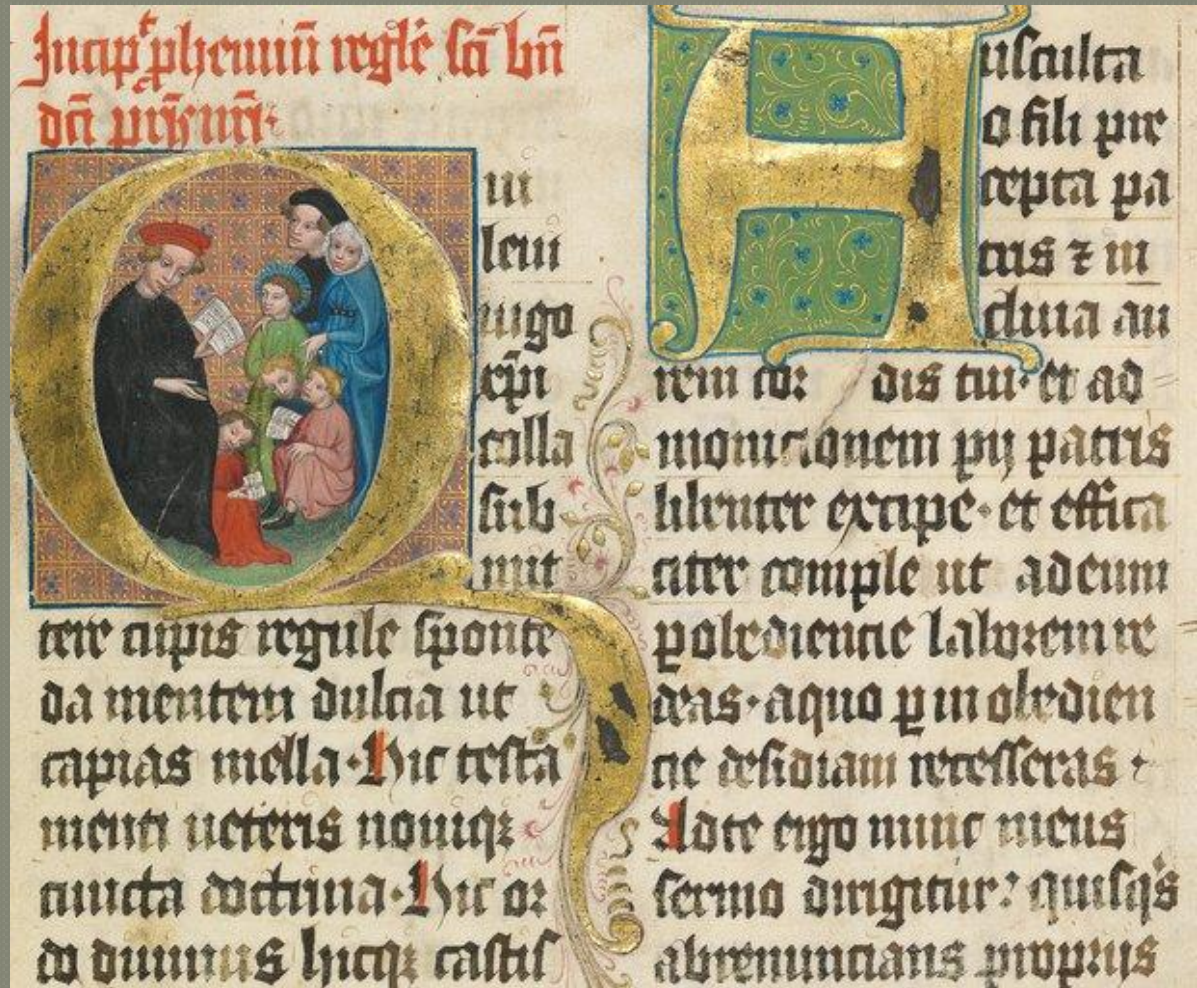 Incip͛ phemiū regle sci bn̄
dci pr̄is nr̄i·
Qui
leui
iugo
xp̄i
colla
sub
mit
tere cupis regule sponte
da mentem dulcia ut
capias mella· Hic testa
menti ueteris nouiqꝫ
cuncta doctrina· Hic or
do diuinus hicqꝫ castis
Ausculta
o fili pre
cepta pa
tris ⁊ in
clina au
rem cor dis tui· et ad
monicionem pij patris
libenter excipe· et effica
citer comple ut ad eum
ꝑ obediencie laborem re
deas· a quo ꝑ in obedien
cie desidiam recesseras·
Ad te ergo nunc meus
sermo dirigitur? quisq͛s
abrenuncians proprijs